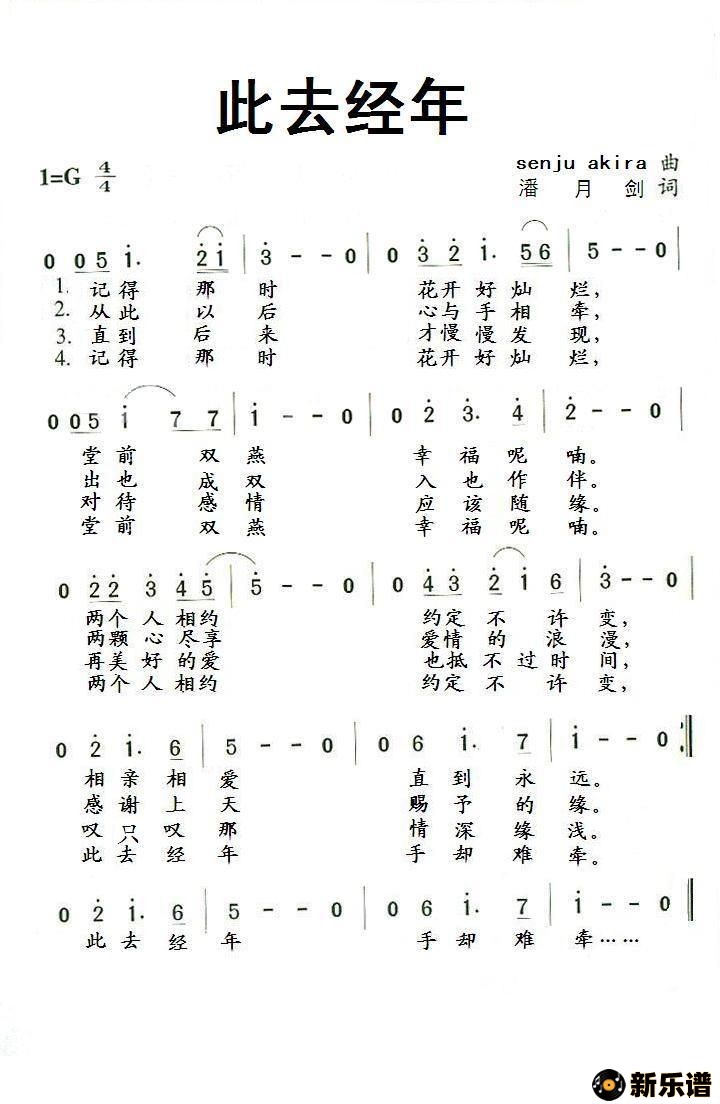 此去经年
senju akira 曲
1=G 4/4
潘 月 剑 词
0 0 5 1· 2 1 | 3 - - 0 | 0 3 2 1· 5 6 | 5 - - 0 |
1. 记得 那 时 花开好灿 烂，
2. 从此 以 后 心与手相 牵，
3. 直到 后 来 才慢慢发 现，
4. 记得 那 时 花开好灿 烂，
0 0 5 1 7 7 7 | 1 - - 0 | 0 2 3· 4 | 2 - - 0 |
堂 前 双 燕 幸 福 呢 喃。
出 也 成 双 入 也 作 伴。
对 待 感 情 应 该 随 缘。
堂 前 双 燕 幸 福 呢 喃。
0 2 2 3 4 5 | 5 - - 0 | 0 4 3 2 1 6 | 3 - - 0 |
两个 人 相约 约定 不 许 变，
两颗 心 尽享 爱情 的 浪 漫，
再美 好 的爱 也抵 不 过 时 间，
两个 人 相约 约定 不 许 变，
0 2 1· 6 | 5 - - 0 | 0 6 1· 7 | 1 - - 0 :‖
相 亲 相 爱 直 到 永 远。
感 谢 上 天 赐 予 的 缘。
叹 只 叹 那 情 深 缘 浅。
此 去 经 年 手 却 难 牵。
0 2 1· 6 | 5 - - 0 | 0 6 1· 7 | 1 - - 0 ‖
此 去 经 年 手 却 难 牵……
新乐谱